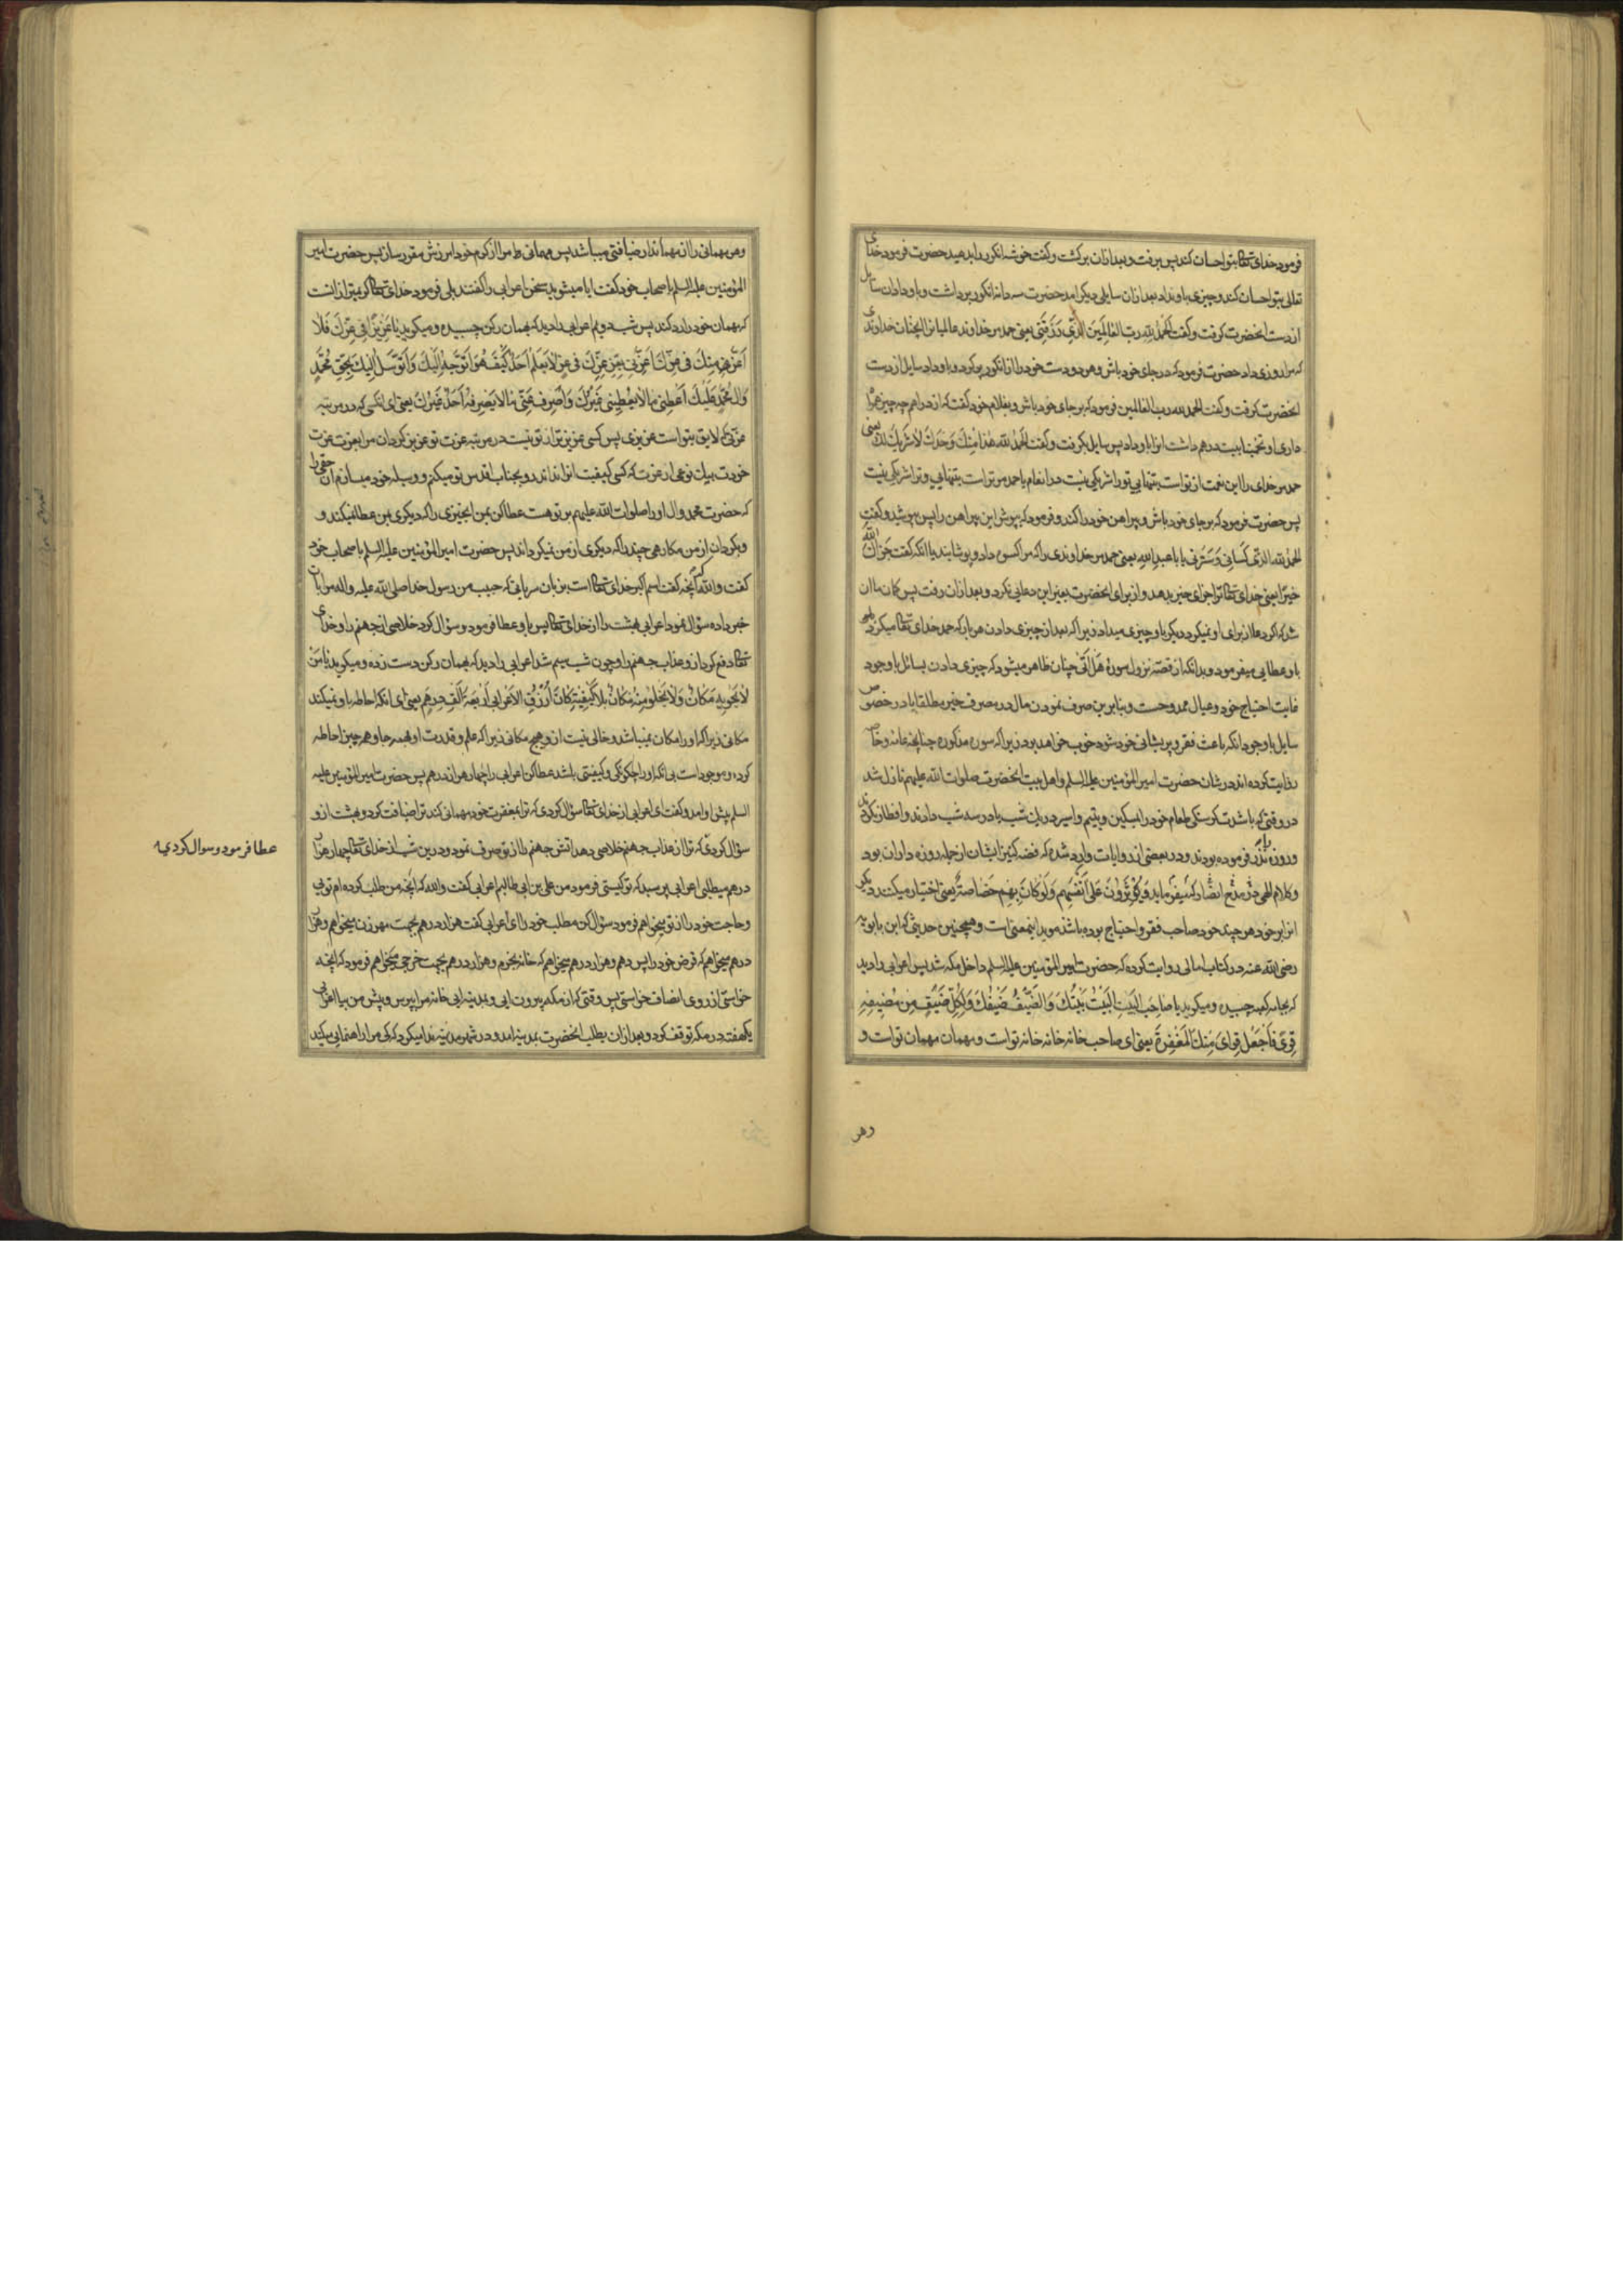 فرمود خدای تعالی بتو احسان کند پس برفت و بعد از ان برکشت و کفت خوشه انکور را بدهید حضرت فرمود خدای
تعالی بتو احسان کند و چیزی باو نداد بعد از ان سایلی دیکر امد حضرت سه دانه انکور برداشت و باو داد ان سایل
از دست انحضرت کرفت و کفت الحمد لله رب العالمین الذی رزقنی یعنی حمد مر خداوند عالمیانرا انچنان خداوندی
که مرا روزی داد حضرت فرمود که در جای خود باش و هر دو دست خود را از انکور پر کرد و باو داد سایل از دست
انحضرت کرفت و کفت الحمد لله رب العالمین فرمود که بر جای خود باش و بغلام خود کفت که از دراهم چه چیز همراه
داری او تخمینا بیست درهم داشت انرا باو داد پس سایل بکرفت و کفت الحمد لله هذا منک وحدک لا شریک لک یعنی
حمد مر خدای را این نعمت از تو است بتنهایی تو را شریکی نیست در انعام یا حمد مر تو راست بتنهایی و ترا شریکی نیست
پس حضرت فرمود که بر جای خود باش و پیراهن خود را کند و فرمود که بپوش این پیراهن را پس پوشید و کفت
الحمد لله الذی کسانی و سترنی یا ابا عبد الله یعنی حمد مر خداوندی را که مرا کسوه داد و پوشانید یا انکه کفت جزاک الله
خیرا یعنی خدای تعالی ترا جزای خیر بدهد و از برای انحضرت بغیر این دعایی نکرد و بعد از ان رفت پس کمان ما ان
شد که اکر دعا از برای او نمیکرد دیکر باو چیزی میداد زیرا که بعد از چیزی دادن هر بار که حمد خدای تعالی میکرد
باو عطایی میفرمود و بدانکه از قصه نزول سوره هل اتی چنان ظاهر میشود که چیزی دادن بسائل با وجود
غایت احتیاج خود و عیال ممدوحست و بنابرین صرف نمودن مال در مصرف خیر مطلقا یا در خصوص
سایل با وجود انکه باعث فقر و پریشانی خود شود خوب خواهد بود زیرا که سوره مذکوره چنانچه عامه و خاصه
روایت کرده اند در شان حضرت امیر المؤمنین علیه السلم و اهل بیت انحضرت صلوات الله علیهم نازل شد
در وقتی که با شدت کرسنکی طعام خود را بمسکین و یتیم و اسیر در یک شب یا در سه شب دادند و افطار نکردند
و روزه نذر فرموده بودند و در بعضی از روایات وارد شده که فضه کنیز ایشان از جمله روزه داران بود
و کلام الهی در مدح انصار که میفرماید و یؤثرون علی انفسهم و لو کان بهم خصاصة یعنی اختیار میکنند دیکر
انرا بر خود هر چند خود صاحب فقر و احتیاج بوده باشند موید اینمعنی است و همچنین حدیثی که ابن بابویه
رضی الله عنه در کتاب امالی روایت کرده که حضرت امیر المؤمنین علیه السلم داخل مکه شد پس اعرابی را دید
که بجامه کعبه چسبیده و میکوید یا صاحب البیت البیت بیتک و الضیف ضیفک و لکل ضیف من مضیفه
قری فاجعل قرای منک المغفرة یعنی ای صاحب خانه خانه خانه تو است و مهمان مهمان تو است و
وهر
وهر مهمانی را از مهماندار ضیافتی میباشد پس مهمانی مرا از کرم خود امرزش مقرر ساز پس حضرت امیر
المؤمنین علیه السلم باصحاب خود کفت ایا میشنوید سخن اعرابی را کفتند بلی فرمود خدای تعالی کریمتر از انست
که مهمان خود را رد کند پس شب دویم اعرابی را دید که بهمان رکن چسبیده و میکوید یا عزیزا فی عزک فلا
اعز منک فی عزک اعزنی بعز عزک فی عز لا یعلم احد کیف هو اتوجه الیک و اتوسل الیک بحق محمد
و ال محمد علیک اعطنی ما لا یعطینی غیرک و اصرف عنی ما لا یصرفه احد غیرک یعنی ای انکسی که در مرتبه
عزتی که لایق بتو است عزیزی پس کسی عزیزتر از تو نیست در مرتبه عزت تو عزیز کردان مرا بعزت عزت
خودت بیک نوعی از عزت که کسی کیفیت انرا نداند رو بجناب اقدس تو میکنم و وسیله خود میسازم ان حقی را
که حضرت محمد و ال او را صلوات الله علیهم بر تو هست عطا کن بمن انچیزی را که دیکری بمن عطا نمیکند و
و بکردان از من مکارهی چند را که دیکری از من نمیکرداند پس حضرت امیر المؤمنین علیه السلم باصحاب خود
کفت والله که انچه کفت اسم اکبر خدای تعالی است بزبان سریانی که حبیب من رسول خدا صلی الله علیه واله مرا بان
خبر داده سؤال نمود اعرابی بهشت را از خدای تعالی پس باو عطا فرمود و سؤال کرد خلاصی از جهنم را و خدای
تعالی دفع کرد از و عذاب جهنم را و چون شب سیم شد اعرابی را دید که بهمان رکن دست زده و میکوید یا من
لا یحویه مکان و لا یخلو منه مکان بلا کیفیة کان ارزق الاعرابی اربعة الف درهم یعنی ای انکه احاطه باو نمیکند
مکانی زیرا که او را مکان نمیباشد و خالی نیست از و هیچ مکانی زیرا که علم و قدرت او بهمه جا و همه چیز احاطه
کرده و موجود است بی انکه او را چکونکی و کیفیتی باشد عطا کن اعرابی را چهار هزار درهم پس حضرت امیر المؤمنین علیه
السلم پیش او امد و کفت ای اعرابی از خدای تعالی سؤال کردی که ترا بمغفرت خود مهمانی کند ترا ضیافت کرد و بهشت از و
سؤال کردی که ترا از عذاب جهنم خلاصی دهد اتش جهنم را از تو صرف نمود و درین شب از خدای تعالی چهار هزار
عطا فرمود و سوال کردی
درهم میطلبی اعرابی پرسید که تو کیستی فرمود من علی بن ابی طالبم اعرابی کفت والله که انچه من طلب کرده ام تویی
و حاجت خود را از تو میخواهم فرمود سؤال کن مطلب خود را ای اعرابی کفت هزار درهم بجهت مهر زن میخواهم و هزار
درهم میخواهم که قرض خود را پس دهم و هزار درهم میخواهم که خانه بخرم و هزار درهم بجهت خرجی میخواهم فرمود که انچه
خواستی از روی انصاف خواستی پس وقتی که از مکه بیرون ایی و بمدینه ایی خانه مرا بپرس و پیش من بیا اعرابی
یکهفته در مکه توقف کرد و بعد از ان بطلب انحضرت بمدینه امد و در شهر مدینه ندا میکرد که کی مرا راهنمایی میکند